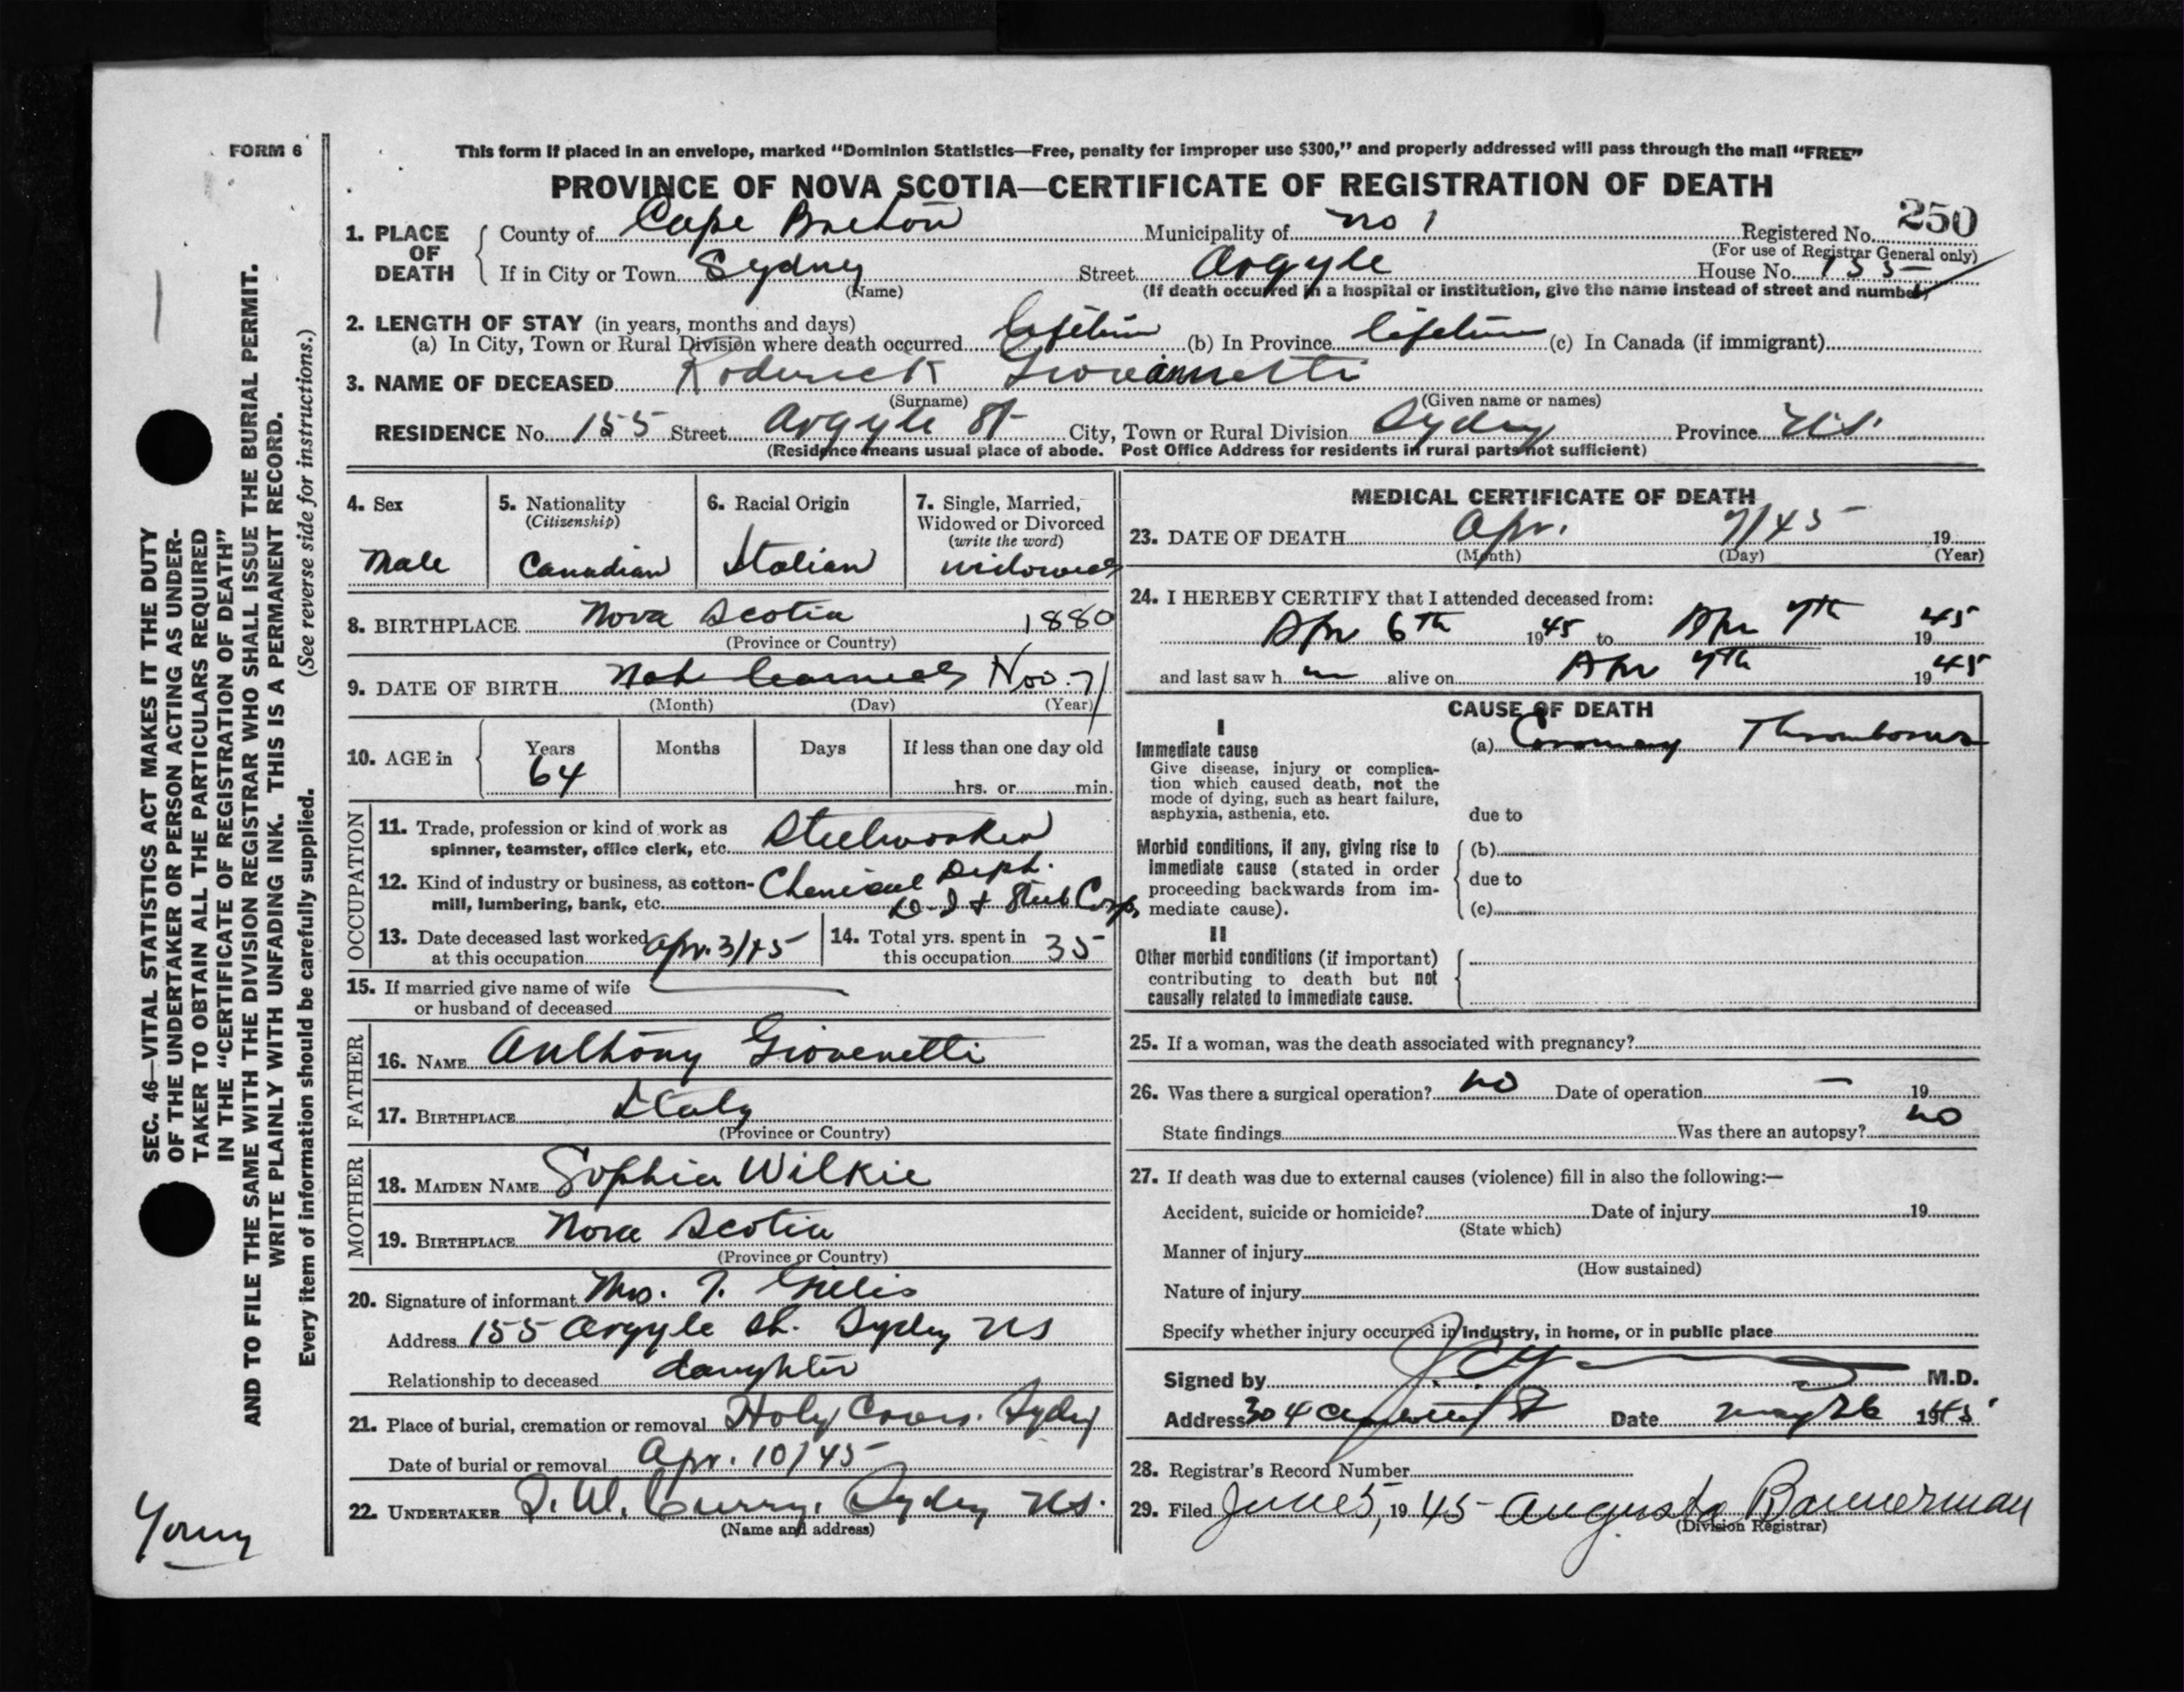 FORM 6
This form if placed in an envelope, marked "Dominion Statistics—Free, penalty for improper use $300," and properly addressed will pass through the mail "FREE"
PROVINCE OF NOVA SCOTIA—CERTIFICATE OF REGISTRATION OF DEATH
250
1. PLACE OF DEATH County of Cape Breton Municipality of no 1 Registered No.
(For use of Registrar General only)
If in City or Town Sydney Street Argyle House No. 155
(Name) (If death occurred in a hospital or institution, give the name instead of street and number)
2. LENGTH OF STAY (in years, months and days)
(a) In City, Town or Rural Division where death occurred lifetime (b) In Province lifetime (c) In Canada (if immigrant)
3. NAME OF DECEASED Roderick Giovannetti
(Surname) (Given name or names)
RESIDENCE No. 155 Street Argyle St City, Town or Rural Division Sydney Province N.S.
(Residence means usual place of abode. Post Office Address for residents in rural parts not sufficient)
4. Sex
Male
5. Nationality
(Citizenship)
Canadian
6. Racial Origin
Italian
7. Single, Married,
Widowed or Divorced
(write the word)
widowed
8. BIRTHPLACE Nova Scotia 1880
(Province or Country)
9. DATE OF BIRTH Not learned Nov. 7
(Month) (Day) (Year)
10. AGE in Years Months Days If less than one day old
64 hrs. or min.
OCCUPATION
11. Trade, profession or kind of work as
spinner, teamster, office clerk, etc. Steelworker
12. Kind of industry or business, as cotton- Chemical Dept.
mill, lumbering, bank, etc. D. I & Steel Corp
13. Date deceased last worked
at this occupation Apr. 3/45
14. Total yrs. spent in
this occupation 35
15. If married give name of wife
or husband of deceased
FATHER
16. NAME Anthony Giovenetti
17. BIRTHPLACE Italy
(Province or Country)
MOTHER
18. MAIDEN NAME Sophia Wilkie
19. BIRTHPLACE Nova Scotia
(Province or Country)
20. Signature of informant Mrs. J. Gillis
Address 155 Argyle St. Sydney NS
Relationship to deceased daughter
21. Place of burial, cremation or removal Holy Cross. Sydney
Date of burial or removal Apr. 10/45
22. UNDERTAKER T. W. Curry. Sydney NS.
(Name and address)
MEDICAL CERTIFICATE OF DEATH
23. DATE OF DEATH Apr. 7/45 19
(Month) (Day) (Year)
24. I HEREBY CERTIFY that I attended deceased from:
Apr 6th 1945 to Apr 7th 1945
and last saw h m alive on Apr 7th 1945
CAUSE OF DEATH
I
Immediate cause (a) Coronary Thrombosis
Give disease, injury or complica-
tion which caused death, not the
mode of dying, such as heart failure,
asphyxia, asthenia, etc. due to
Morbid conditions, if any, giving rise to (b)
immediate cause (stated in order
proceeding backwards from im- due to
mediate cause). (c)
II
Other morbid conditions (if important)
contributing to death but not
causally related to immediate cause.
25. If a woman, was the death associated with pregnancy?
26. Was there a surgical operation? no Date of operation — 19
State findings Was there an autopsy? no
27. If death was due to external causes (violence) fill in also the following:—
Accident, suicide or homicide? Date of injury 19
(State which)
Manner of injury
(How sustained)
Nature of injury
Specify whether injury occurred in industry, in home, or in public place
Signed by M.D.
Address 304 Date May 26 1945
28. Registrar's Record Number
29. Filed June 5, 1945 Augusta Bannerman
(Division Registrar)
SEC. 46—VITAL STATISTICS ACT MAKES IT THE DUTY
OF THE UNDERTAKER OR PERSON ACTING AS UNDER-
TAKER TO OBTAIN ALL THE PARTICULARS REQUIRED
IN THE "CERTIFICATE OF REGISTRATION OF DEATH"
AND TO FILE THE SAME WITH THE DIVISION REGISTRAR WHO SHALL ISSUE THE BURIAL PERMIT.
WRITE PLAINLY WITH UNFADING INK. THIS IS A PERMANENT RECORD.
Every item of information should be carefully supplied. (See reverse side for instructions.)
Young